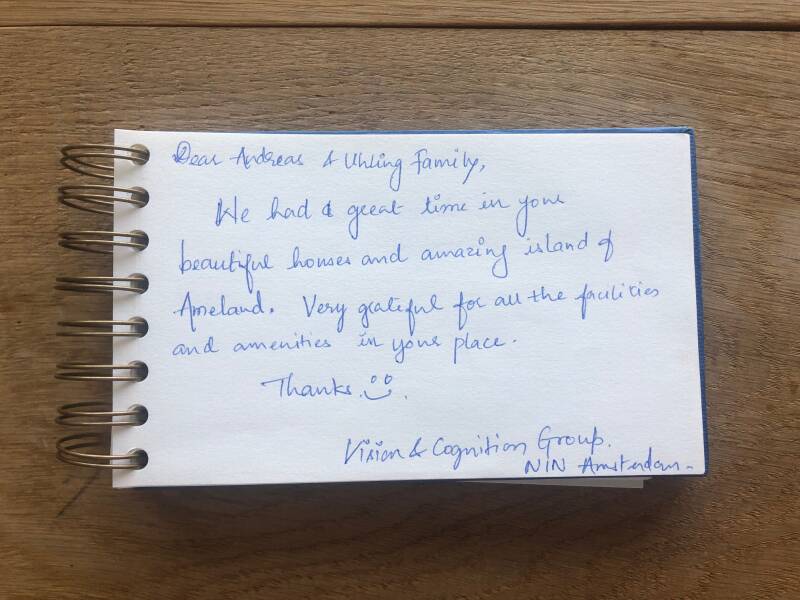 Dear Andreas & Uhling Family,
We had a great time in your
beautiful houses and amazing island of
Ameland. Very grateful for all the facilities
and amenities in your place.
Thanks.
Vision & Cognition Group.
NIN Amsterdam